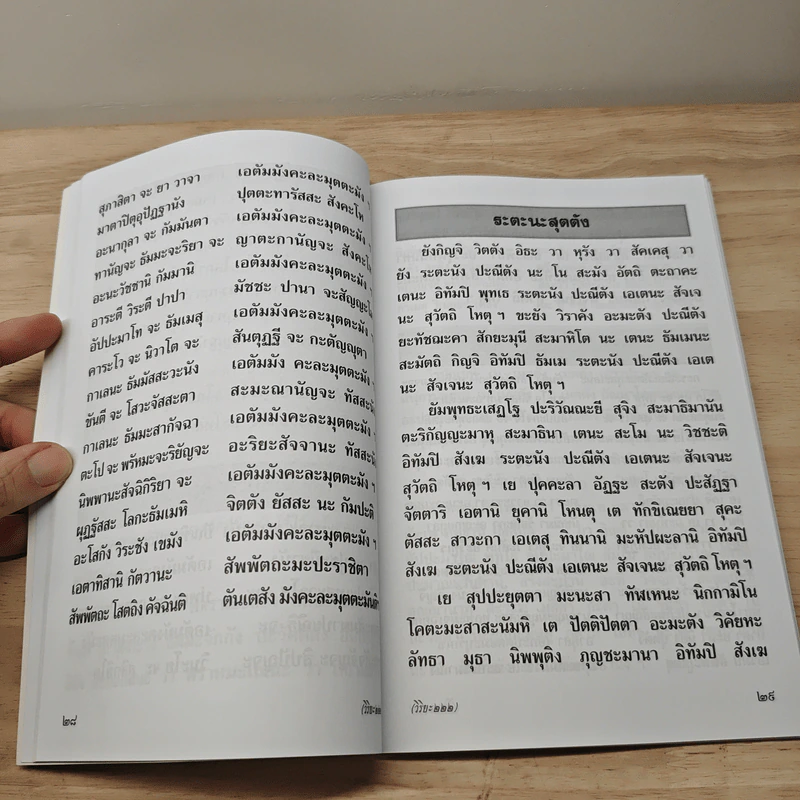 สุภาสิตา จะ ยา วาจา เอตัมมังคะละมุตตะมัง ฯ
มาตาปิตุอุปัฏฐานัง ปุตตะทารัสสะ สังคะโห
อะนากุลา จะ กัมมันตา เอตัมมังคะละมุตตะมัง ฯ
ทานัญจะ ธัมมะจะริยา จะ ญาตะกานัญจะ สังคะโห
อะนะวัชชานิ กัมมานิ เอตัมมังคะละมุตตะมัง ฯ
อาระตี วิระตี ปาปา มัชชะ ปานา จะสัญญะโม
อัปปะมาโท จะ ธัมเมสุ เอตัมมังคะละมุตตะมัง ฯ
คาระโว จะ นิวาโต จะ สันตุฏฐี จะ กะตัญญุตา
กาเลนะ ธัมมัสสะวะนัง เอตัมมัง คะละมุตตะมัง ฯ
ขันตี จะ โสวะจัสสะตา สะมะณานัญจะ ทัสสะนัง
กาเลนะ ธัมมะสากัจฉา เอตัมมังคะละมุตตะมัง ฯ
ตะโป จะ พรัหมะจะริยัญจะ อะริยะสัจจานะ ทัสสะนัง
นิพพานะสัจฉิกิริยา จะ เอตัมมังคะละมุตตะมัง ฯ
ผุฏฐัสสะ โลกะธัมเมหิ จิตตัง ยัสสะ นะ กัมปะติ
อะโสกัง วิระชัง เขมัง เอตัมมังคะละมุตตะมัง ฯ
เอตาทิสานิ กัตวานะ สัพพัตถะมะปะราชิตา
สัพพัตถะ โสตถิง คัจฉันติ ตันเตสัง มังคะละมุตตะมันติฯ
๒๘
(วิริยะ๒๒
ระตะนะสุตตัง
ยังกิญจิ วิตตัง อิธะ วา หุรัง วา สัคเคสุ วา
ยัง ระตะนัง ปะณีตัง นะ โน สะมัง อัตถิ ตะถาคะ
เตนะ อิทัมปิ พุทเธ ระตะนัง ปะณีตัง เอเตนะ สัจเจ
นะ สุวัตถิ โหตุ ฯ ขะยัง วิราคัง อะมะตัง ปะณีตัง
ยะทัชฌะคา สักยะมุนี สะมาหิโต นะ เตนะ ธัมเมนะ
สะมัตถิ กิญจิ อิทัมปิ ธัมเม ระตะนัง ปะณีตัง เอเต
นะ สัจเจนะ สุวัตถิ โหตุ ฯ
ยัมพุทธะเสฏโฐ ปะริวัณณะยี สุจิง สะมาธิมานัน
ตะริกัญญะมาหุ สะมาธินา เตนะ สะโม นะ วิชชะติ
อิทัมปิ สังเฆ ระตะนัง ปะณีตัง เอเตนะ สัจเจนะ
สุวัตถิ โหตุ ฯ เย ปุคคะลา อัฏฐะ สะตัง ปะสัฏฐา
จัตตาริ เอตานิ ยุคานิ โหนตุ เต ทักขิเณยยา สุคะ
ตัสสะ สาวะกา เอเตสุ ทินนานิ มะหัปผะลานิ อิทัมปิ
สังเฆ ระตะนัง ปะณีตัง เอเตนะ สัจเจนะ สุวัตถิ โหตุ ฯ
เย สุปปะยุตตา มะนะสา ทัฬเหนะ นิกกามิโน
โคตะมะสาสะนัมหิ เต ปัตติปัตตา อะมะตัง วิคัยหะ
ลัทธา มุธา นิพพุติง ภุญชะมานา อิทัมปิ สังเฆ
(วิริยะ๒๒๒)
๒๙